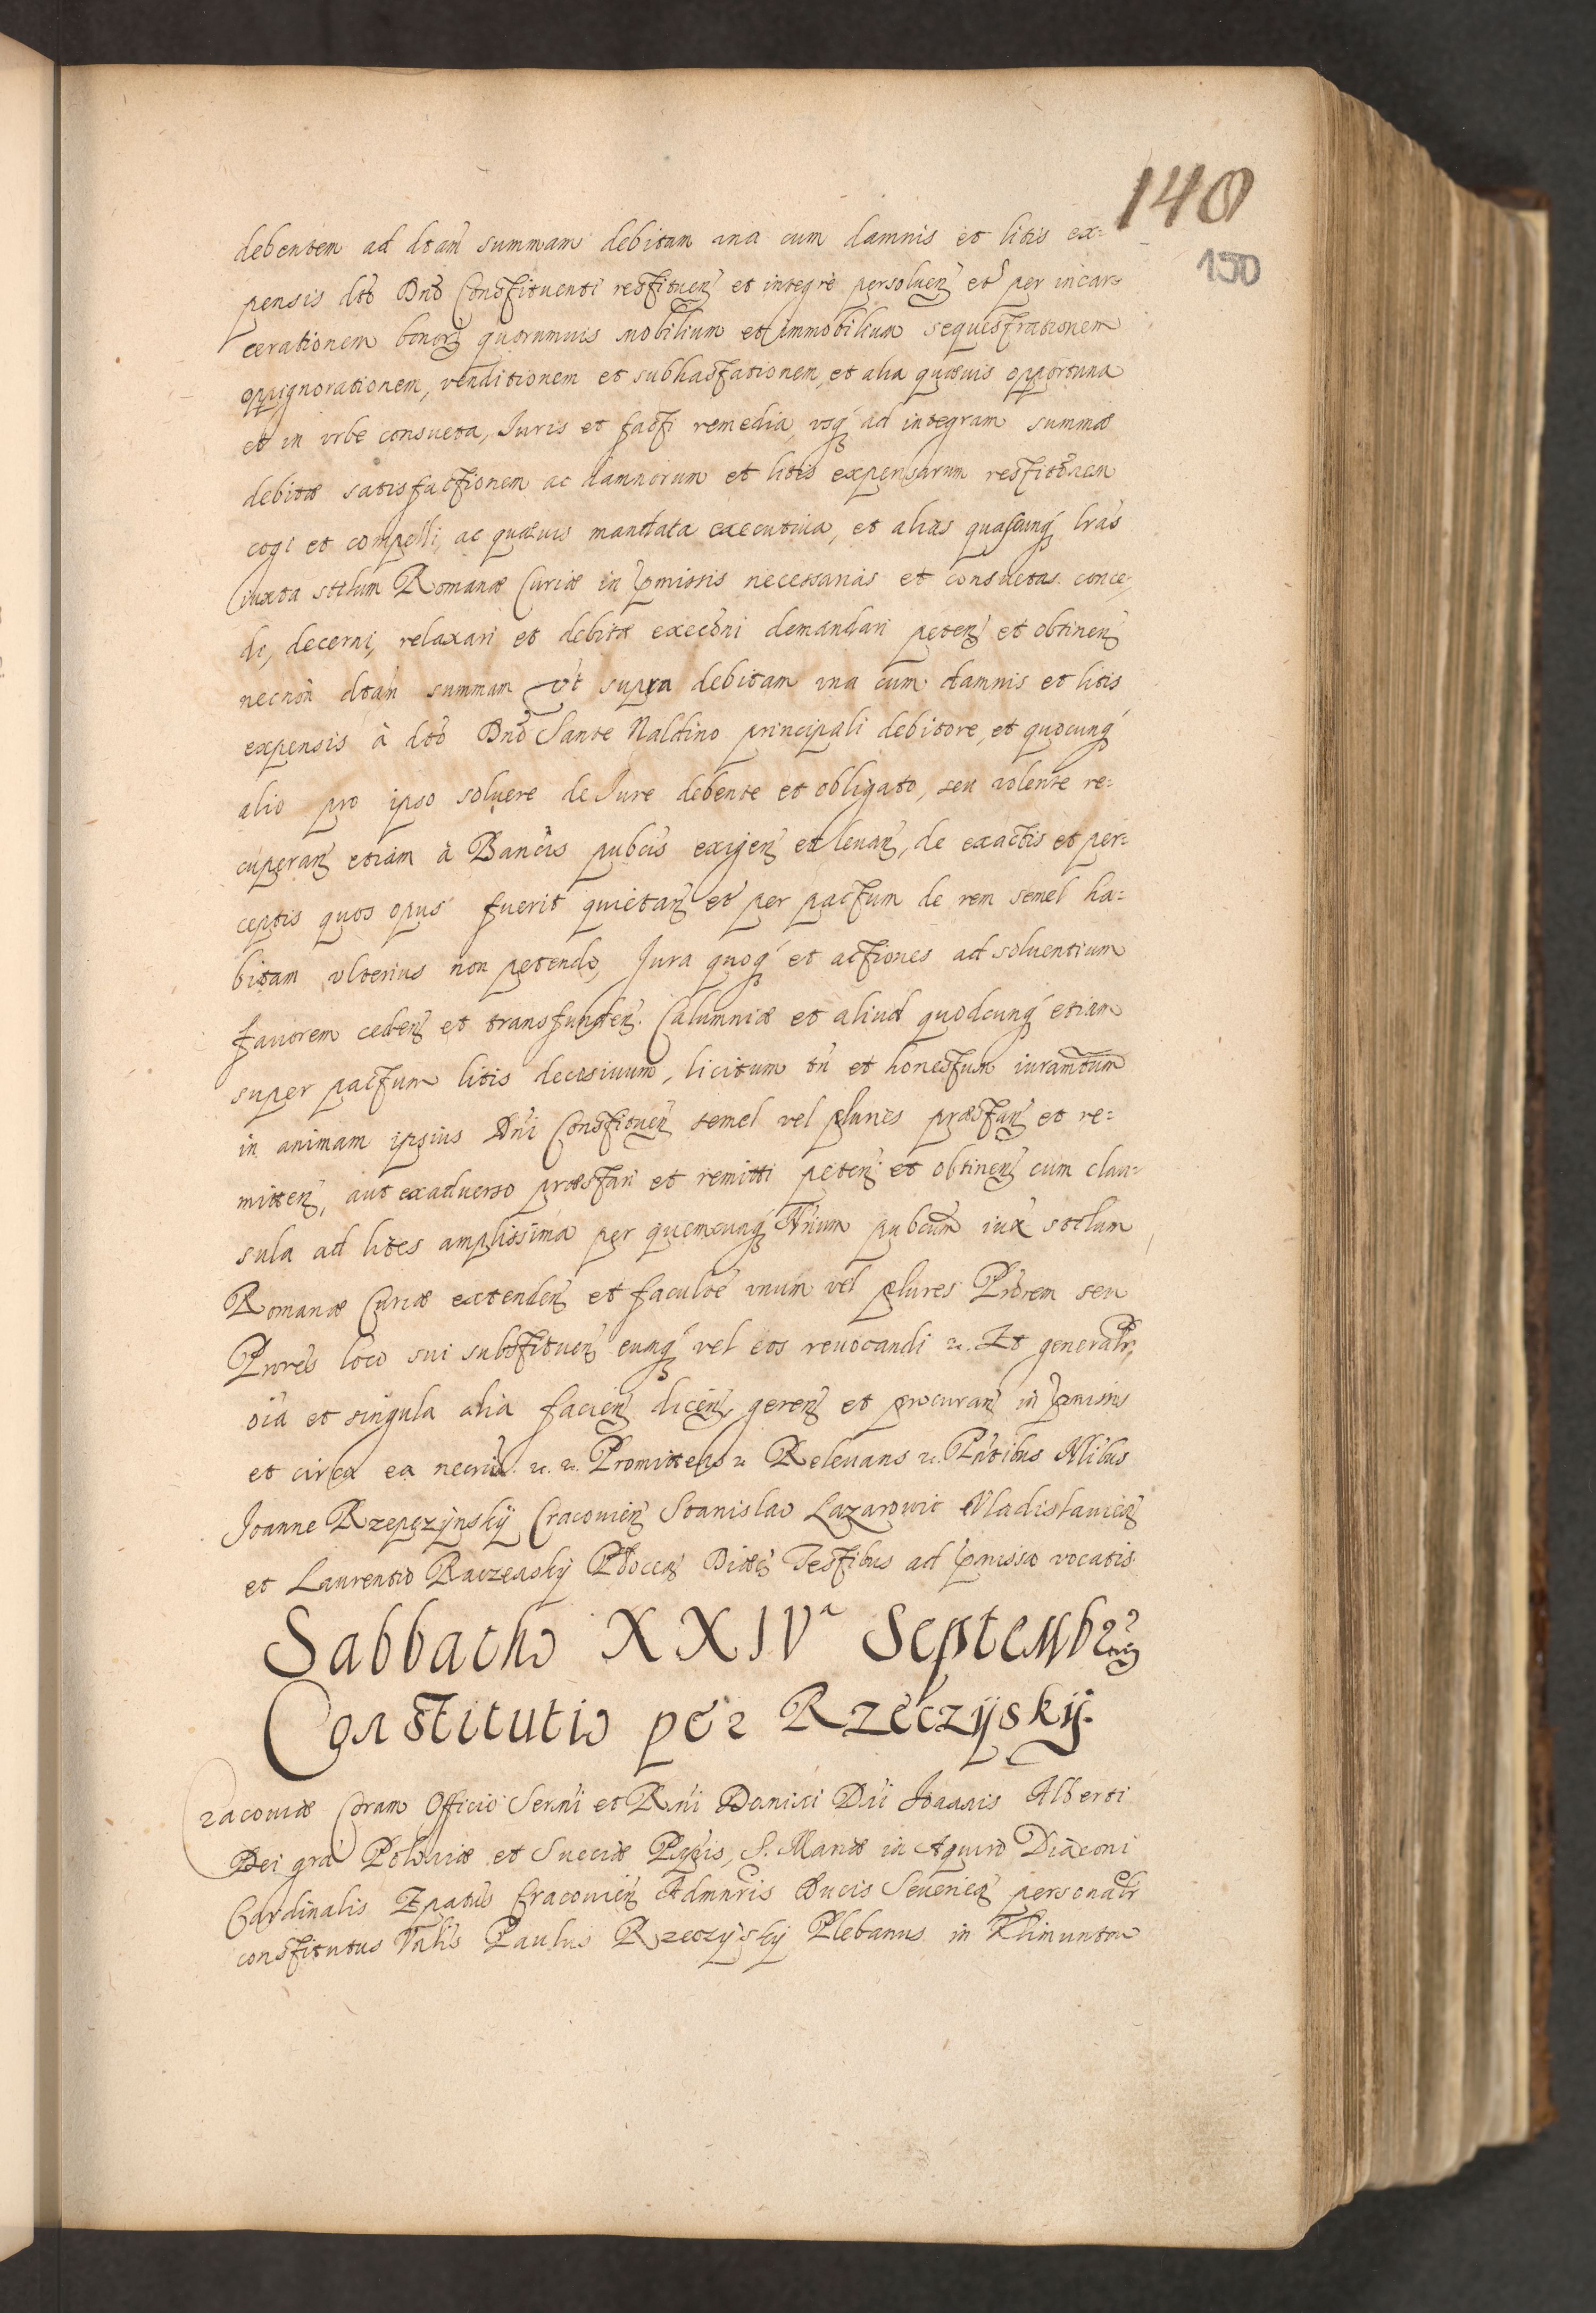 140
150
debentem ad dtam summam debitam una cum damnis et litis ex=
pensis dto Dno Constituenti restituen et integrè persoluen et per incar=
cerationem bonor quorumuis mobilium et immobilium sequestrationem
oppignorationem, venditionem et subhastationem, et alia quæuis opportuna
et in vrbe consueta, Iuris et facti remedia, vsq ad integram summæ
debitæ satisfactionem ac damnorum et litis expensarum restitonem
cogi et compelli, ac quæuis mandata executiua, et alias quascunq lras
iuxta stilum Romanæ Curiæ in pmissis necessarias et consuetas conce,
di, decerni, relaxari et debitæ execoni demandari peten et obtinen
necnon dtam summam vt supra debitam una cum damnis et litis
expensis à dto Dno Sante Naldino principali debitore, et quocunq
alio pro ipso soluere de Iure debente et obligato, seu volente re=
cuperan etiam à Bancis pubcis exigen et leuan, de exactis et per=
ceptis quos opus fuerit quietan et per pactum de rem semel ha=
bitam vlterius non petendo, Iura quoq et actiones ad soluentium
fauorem ceden et transfunden. Calumniæ et aliud quodcunq etiam
super pactum litis decisiuum, licitum tn et honestum iuramtum
in animam ipsius Dni Constituen semel vel plures præstan et re=
mitten, aut exaduerso præstari et remitti peten et obtinen cum clau=
sula ad lites amplissima per quemcunq Nrium pubcum iux stilum
Romanæ Curiæ extenden et facultè unum vel plures Prorem seu
Prores loco sui substituen eumq vel eos reuocandi &. Et generalr,
oia et singula alia facien, dicen, geren et procuran in pmissis
et circa ea necria. &. &. Promittens & Releuans &. Pntibus Nlibus
Ioanne Rzepczÿnskÿ Cracouien Stanislao Lazarowic Vladislauien
et Laurentio Raczenskÿ Plocen Dioec Testibus ad pmissa vocatis
Sabbatho XXIVa Septembris
Constitutio per Rzeczÿskÿ.
Cracouiæ Coram Officio Sermi et Rmi Domini Dni Ioannis Alberti
Dei gra Poloniæ et Sueciæ Pncipis, S. Mariæ in Aquiro Diaconi
Cardinalis Epatus Cracouien Admnris Ducis Seuerien personalr
constitutus Nalis Paulus Rzeczÿskÿ Plebanus in Klimuntow